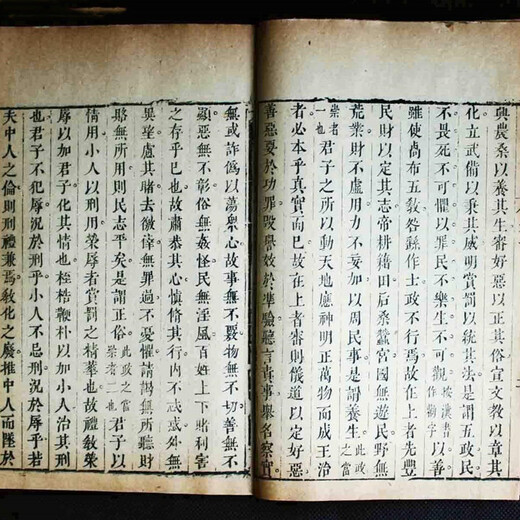 興農桑以養其生審好惡以正其俗宣文教以章其
化立武備以秉其威明賞罰以統其法是謂五政民
不畏死不可懼以罪民不樂生不可觀按漢書作勸字以善
雖使卨布五教咎繇作士政不行焉故在上者先豐
民財以定其志帝耕籍田后桑蠶宮國無遊民野無
荒業財不虛用力不妄加以周民事是謂養生此政之當
崇者一也君子之所以動天地應神明正萬物而成王治
者必本乎真實而已故在上者審則儀道以定好惡
善惡要於功罪毀譽效於準驗聽言責事舉名察實
無或詐偽以蕩衆心故事無不覈物無不切善無不
顯惡無不彰俗無姦怪民無淫風百姓上下睹利害
之存乎已也故肅恭其心慎脩其行内不忒惑外無
異望慮其睹去徼倖無罪過不憂懼請謁無所聽財
賂無所用則民志平矣是謂正俗此政之當崇者二也君子以
情用小人以刑用榮辱者賞罰之精華也故禮教榮
辱以加君子化其情也桎梏鞭朴以加小人治其刑
也君子不犯辱況於刑乎小人不忌刑況於辱乎若
夫中人之倫則刑禮兼焉教化之廢推中人而墜於